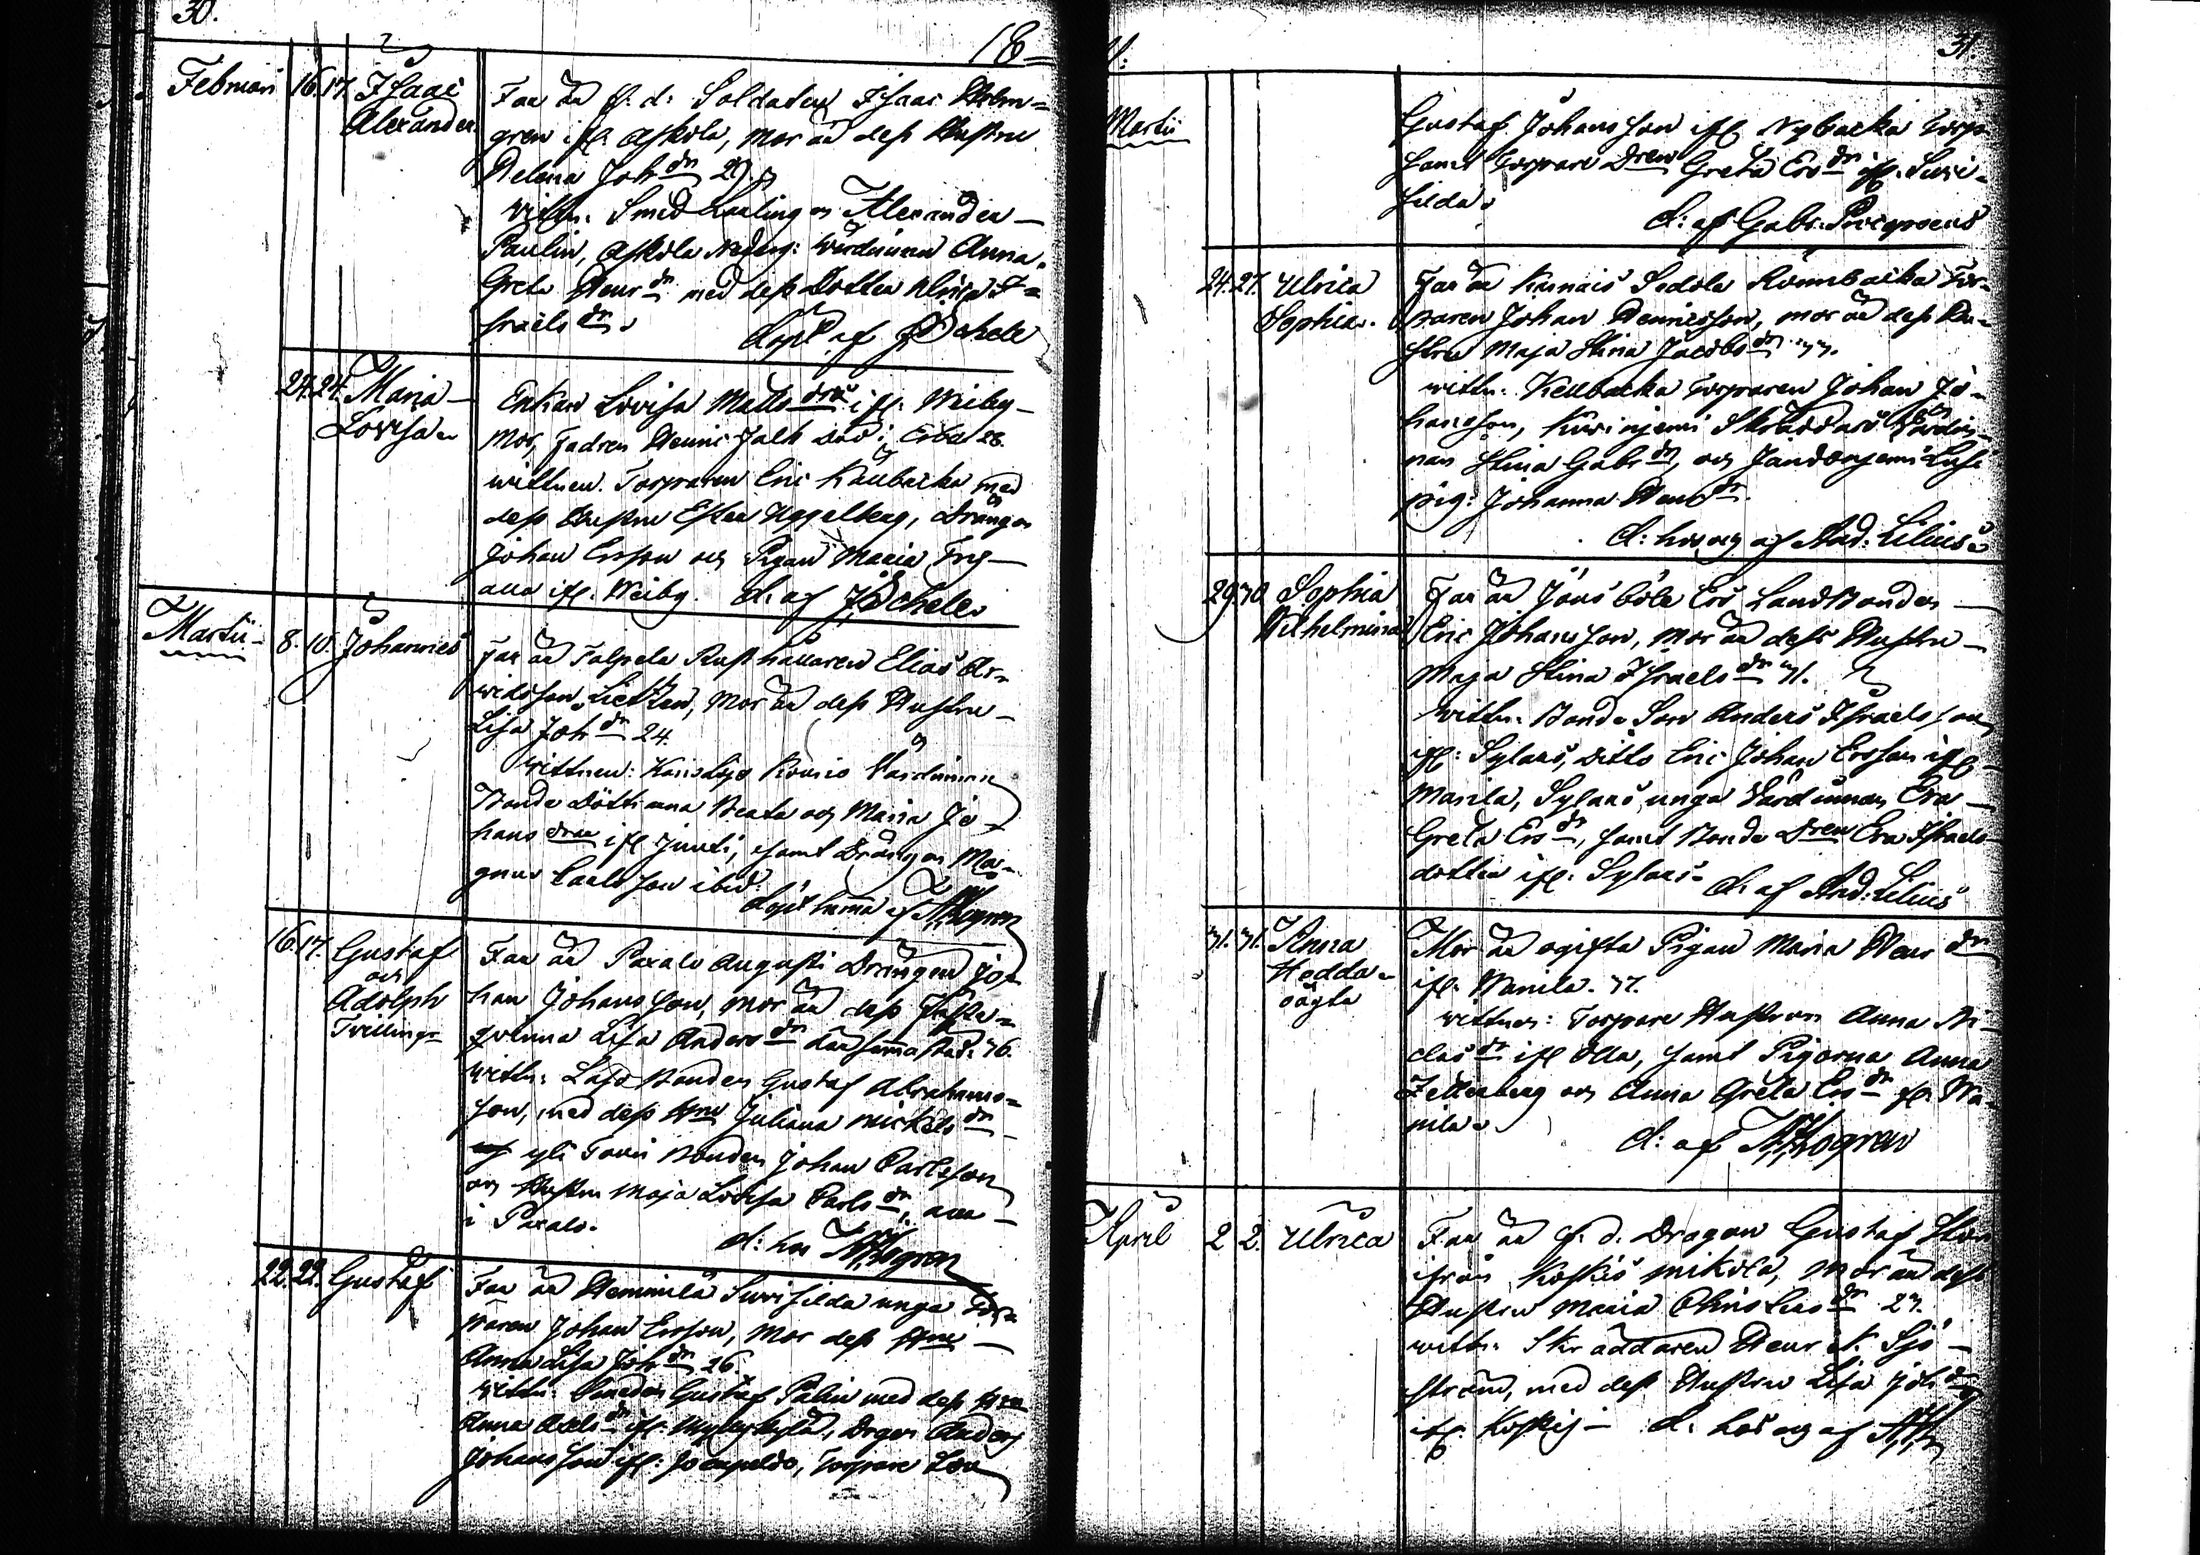 30.
18
Februari 16. 17. Isaac
Alexander.
Far är f. d: Soldaten Isaac Holm=
gren ifr. Askola, Mor är dess Hustru
Helena Joh dr 29
Wittn. Smed Lärlingen Alexander
Paulin, Askola Nederg: Värdinnan Anna
Greta Henr dr med dess Dotter Ulrica I=
sraels dr.
döpt af Schele
24. 24. Maria
Lovisa
Enkan Lovisa Matts dr ifr. Weiby
Mor, fadren Henric Falk död i
wittnen. Torparen Eric Kallbacka med
dess Hustru Ester Uggelberg, Drängen
Johan Ersson och Pigan Maria
alla ifr. Weiby. d. af Schele
Martii 8. 10. Johannes
Far är Talpela Rusthållaren Elias Ar=
widsson, Mor är dess Hustru
Lisa Joh dr 24.
Wittnen: Värdinnan
Bonde Döttrarna Beata och Maria Jo=
hans ifr Junti, samt Drängen Mag=
nus Carlsson ibid.
döpt hemma af
16. 17. Gustaf
och
Adolph
Tvillingr
Far är Paxalo Augusti Drängen Jo=
han Johansson, Mor är dess Fäste=
qvinna Lisa Anders dr därsammastäd. 36.
Wittn: Bonden Gustaf Abrahams=
son, med dess Hru Juliana Mickels dr
yli Bonden Johan Carlsson
och Hustru Maja Lovisa Carls dr, alla
i Paxalo.
d: hos
22. 22. Gustaf
Far är Hemmilä Surisilda unga Tor=
paren Johan Ersson, Mor dess Hru
Anna Lisa Joh dr 26.
Wittn: Smeden Gustaf Palin med dess Hru
Anna Axels dr ifr. Myllykylä, Drgen Anders
Johansson ifr: Torpare
31.
Martii
Gustaf Johansson ifr Nybacka Torp
samt Torpare Dren Greta Ers dr ifr. Suri=
silda.
d: af Gabr.
24. 27. Ulrica
Sophia.
Far är Karnais Sedola Rönnbacka Tor=
paren Johan Henricsson, mor är dess Hu=
stru Maja Stina Jacobs dr 33.
wittn. Källbacka Torparen Johan Jo=
hansson, Skräddars Värdin=
nan Stina Gabr dr, och
pig: Johanna Henr dr.
d: hos og af And: Lilius
29. 30. Sophia
Wilhelmina
Far är Jönsböle Ers Landbonden
Eric Johansson, Mor är dess Hustru
Maja Stina Israels dr 31.
Wittn. Bonde Son Anders Israelsson
ifr: Sylars, ditto Eric Johan Ersson ifr
Manila, Sylars unga Värdinnan Eva
Greta Ers dr, samt Bonde Dren Eva Israels
dotter ifr. Sylars
d. af And: Lilius
31. 31. Anna
Hedda
oägta
Mor är ogifta Pigan Maria Henr dr
ifr. Wanila. 37.
wittnen: Torpare Hustrun Anna Ni=
clas dr ifr Olla, samt Pigorna Anna
Zetterberg och Anna Greta Ers dr ifr. Wa=
nila.
d: af
April 2 2. Ulrica
Far är f. d. Dragon Gustaf
ifrån Koskis Mikola, Mor är dess
Hustru Maria Christers dr 23.
wittn. Skräddaren Henr N. Sjö=
ström, med dess Hustru Lisa Joh dr
ifr. Koskis d. hos og af